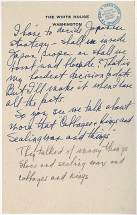 THE WHITE HOUSE
WASHINGTON
I have to decide Japanese
strategy - shall we invade
Japan proper or shall we
bomb and blockade? That is
my hardest decision to date.
But I'll make it when I have
all the facts.
So you see we talk about
more than Cabbages & Kings and
Sealing wax and things
They talked of many things
shoes and sealing wax and
cabbages and kings